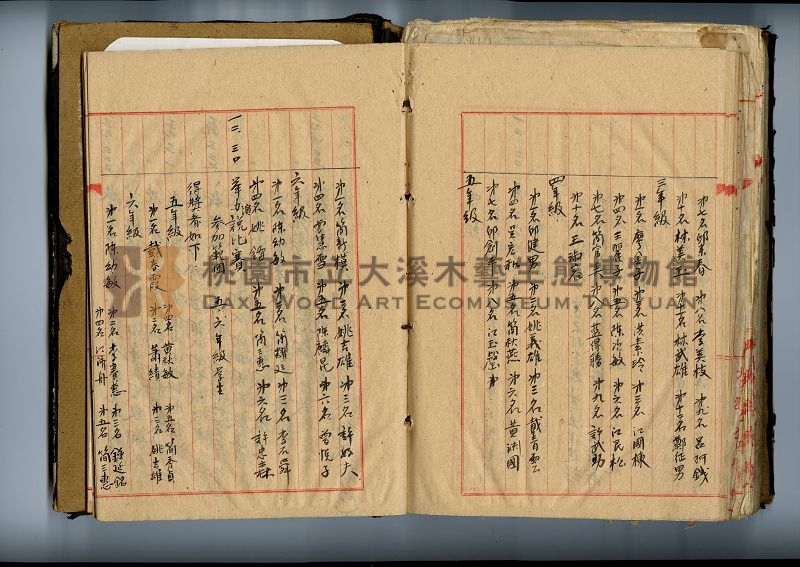 第七名 邱素春 第八名 李美枝 第九名 呂阿錢
第十名 林美玉 第十一名 林武雄 第十二名 鄭征男
三年級
第一名 廖金子 第二名 洪素玲 第三名 江國棟
第四名 王翠子 第五名 陳次敏 第六名 江民松
第七名 簡 第八名 藍得勝 第九名 許武勳
第十名 王
四年級
第一名 邱建男 第二名 姚義雄 第三名 戴青雲
第四名 吳 第五名 簡秋燕 第六名 黃 國
第七名 邱創 第八名 江玉
五年級
第一名 簡新模 第二名 姚吉雄 第三名 許 夫
第四名 曾慧雪 第五名 陳麟昆 第六名 曾悅子
六年級
第一名 陳幼敏 第二名 簡耀廷 第三名 李石舜
第四名 姚 第五名 簡三惠 第六名 許忠森
一二、三〇 舉辦演說比賽
參加範圍 五、六年級學生
得獎者如下
五年級
第一名 戴春霞 第二名 葉靖 第三名 姚吉雄
第四名 黃秋敏 第五名 簡秀貞
六年級
第一名 陳幼敏 第二名 李彥惠 第三名 鍾延銘
第四名 江濟舟 第五名 簡三惠
桃園市立大溪木藝生態博物館
DAXI WOOD ART ECOMUSEUM, TAOYUAN